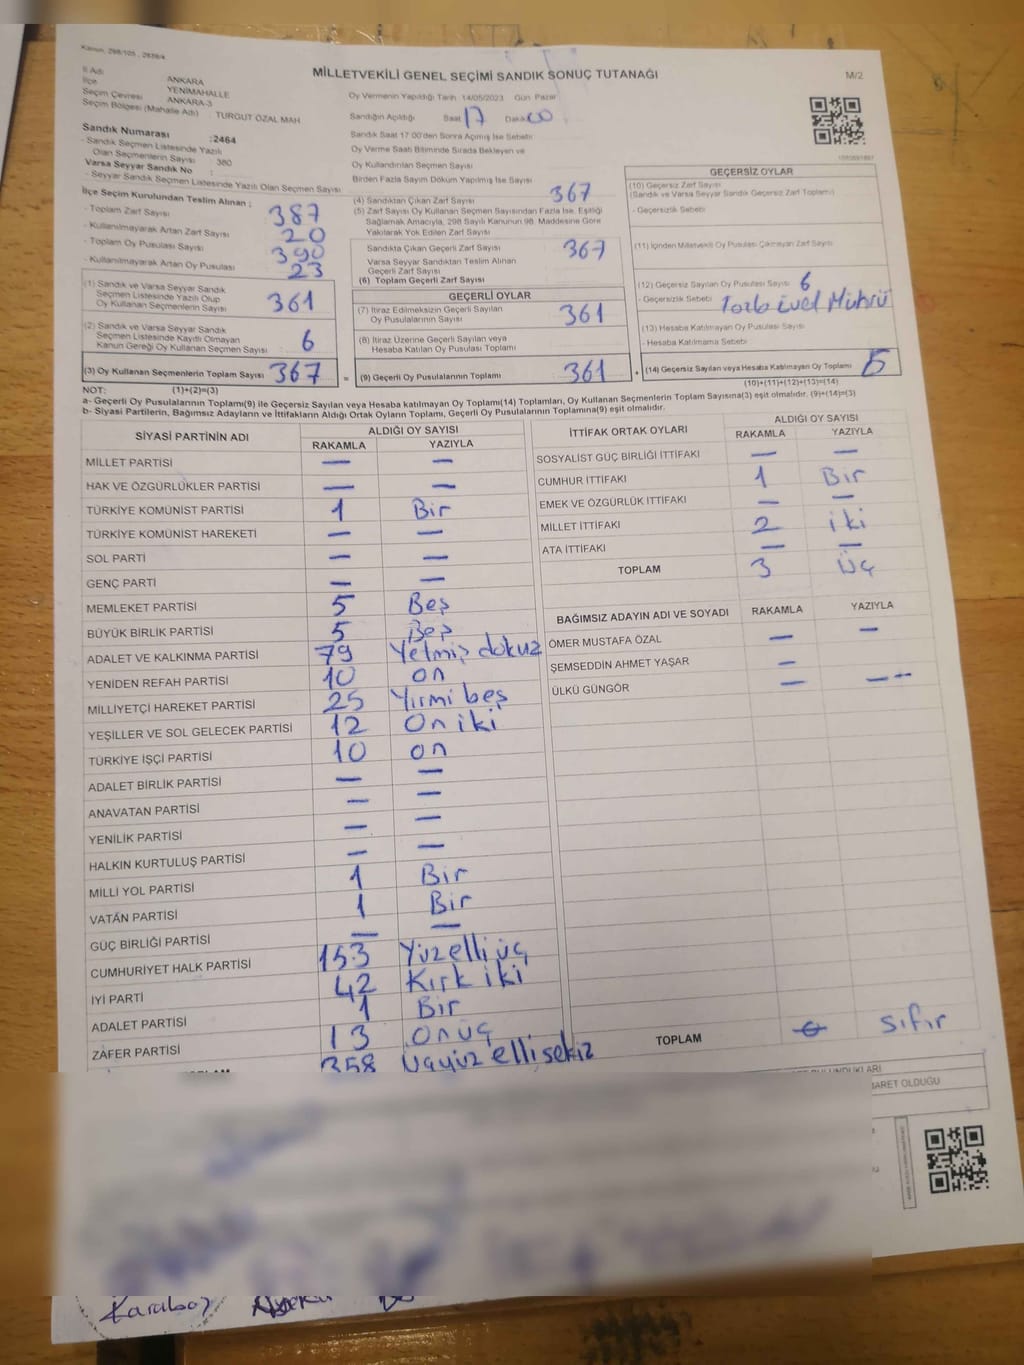 Kanun, 298/105 , 2839/4
MİLLETVEKİLİ GENEL SEÇİMİ SANDIK SONUÇ TUTANAĞI
M/2
İl Adı ANKARA
İlçe YENİMAHALLE
Seçim Çevresi ANKARA-3
Seçim Bölgesi (Mahalle Adı) : TURGUT ÖZAL MAH
Sandık Numarası :2464
- Sandık Seçmen Listesinde Yazılı
Olan Seçmenlerin Sayısı : 380
Varsa Seyyar Sandık No :
- Seyyar Sandık Seçmen Listesinde Yazılı Olan Seçmen Sayısı
Oy Vermenin Yapıldığı Tarih 14/05/2023 Gün Pazar
Sandığın Açıldığı Saat 17 Dakika 00
Sandık Saat 17.00'den Sonra Açılmış İse Sebebi:
Oy Verme Saati Bitiminde Sırada Bekleyen ve
Oy Kullandırılan Seçmen Sayısı
Birden Fazla Sayım Döküm Yapılmış İse Sayısı
İlçe Seçim Kurulundan Teslim Alınan ;
- Toplam Zarf Sayısı : 387
- Kullanılmayarak Artan Zarf Sayısı : 20
- Toplam Oy Pusulası Sayısı : 390
- Kullanılmayarak Artan Oy Pusulası : 23
(1) Sandık ve Varsa Seyyar Sandık
Seçmen Listesinde Yazılı Olup
Oy Kullanan Seçmenlerin Sayısı : 361
(2) Sandık ve Varsa Seyyar Sandık
Seçmen Listesinde Kayıtlı Olmayan
Kanun Gereği Oy Kullanan Seçmen Sayısı : 6
(3) Oy Kullanan Seçmenlerin Toplam Sayısı : 367 =
(4) Sandıktan Çıkan Zarf Sayısı 367
(5) Zarf Sayısı Oy Kullanan Seçmen Sayısından Fazla İse, Eşitliği
Sağlamak Amacıyla, 298 Sayılı Kanunun 98. Maddesine Göre
Yakılarak Yok Edilen Zarf Sayısı
Sandıkta Çıkan Geçerli Zarf Sayısı 367
Varsa Seyyar Sandıktan Teslim Alınan
Geçerli Zarf Sayısı
(6) Toplam Geçerli Zarf Sayısı
GEÇERLİ OYLAR
(7) İtiraz Edilmeksizin Geçerli Sayılan
Oy Pusulalarının Sayısı : 361
(8) İtiraz Üzerine Geçerli Sayılan veya
Hesaba Katılan Oy Pusulası Toplamı
(9) Geçerli Oy Pusulalarının Toplamı : 361 +
GEÇERSİZ OYLAR
(10) Geçersiz Zarf Sayısı
(Sandık ve Varsa Seyyar Sandık Geçersiz Zarf Toplamı)
- Geçersizlik Sebebi
(11) İçinden Milletvekili Oy Pusulası Çıkmayan Zarf Sayısı
(12) Geçersiz Sayılan Oy Pusulası Sayısı 6
- Geçersizlik Sebebi :
(13) Hesaba Katılmayan Oy Pusulası Sayısı
- Hesaba Katılmama Sebebi
(14) Geçersiz Sayılan veya Hesaba Katılmayan Oy Toplamı
(10)+(11)+(12)+(13)=(14)
NOT: (1)+(2)=(3)
a- Geçerli Oy Pusulalarının Toplamı(9) ile Geçersiz Sayılan veya Hesaba katılmayan Oy Toplamı(14) Toplamları, Oy Kullanan Seçmenlerin Toplam Sayısına(3) eşit olmalıdır. (9)+(14)=(3)
b- Siyasi Partilerin, Bağımsız Adayların ve İttifakların Aldığı Ortak Oyların Toplamı, Geçerli Oy Pusulalarının Toplamına(9) eşit olmalıdır.
SİYASİ PARTİNİN ADI ALDIĞI OY SAYISI
RAKAMLA YAZIYLA
MİLLET PARTİSİ — —
HAK VE ÖZGÜRLÜKLER PARTİSİ — —
TÜRKİYE KOMÜNİST PARTİSİ 1 Bir
TÜRKİYE KOMÜNİST HAREKETİ — —
SOL PARTİ — —
GENÇ PARTİ — —
MEMLEKET PARTİSİ 5 Beş
BÜYÜK BİRLİK PARTİSİ 5 Beş
ADALET VE KALKINMA PARTİSİ 79 Yetmiş dokuz
YENİDEN REFAH PARTİSİ 10 on
MİLLİYETÇİ HAREKET PARTİSİ 25 Yirmi beş
YEŞİLLER VE SOL GELECEK PARTİSİ 12 On iki
TÜRKİYE İŞÇİ PARTİSİ 10 on
ADALET BİRLİK PARTİSİ — —
ANAVATAN PARTİSİ — —
YENİLİK PARTİSİ — —
HALKIN KURTULUŞ PARTİSİ — —
MİLLİ YOL PARTİSİ 1 Bir
VATAN PARTİSİ 1 Bir
GÜÇ BİRLİĞİ PARTİSİ — —
CUMHURİYET HALK PARTİSİ 153 Yüz elli üç
İYİ PARTİ 42 Kırk iki
ADALET PARTİSİ 1 Bir
ZAFER PARTİSİ 13 Onüç
358 Üçyüz elli sekiz
İTTİFAK ORTAK OYLARI ALDIĞI OY SAYISI
RAKAMLA YAZIYLA
SOSYALİST GÜÇ BİRLİĞİ İTTİFAKI — —
CUMHUR İTTİFAKI 1 Bir
EMEK VE ÖZGÜRLÜK İTTİFAKI — —
MİLLET İTTİFAKI 2 iki
ATA İTTİFAKI — —
TOPLAM 3 Üç
BAĞIMSIZ ADAYIN ADI VE SOYADI RAKAMLA YAZIYLA
ÖMER MUSTAFA ÖZAL — —
ŞEMSEDDİN AHMET YAŞAR —
ÜLKÜ GÜNGÖR — — —
TOPLAM 0 sıfır
OLDUĞU